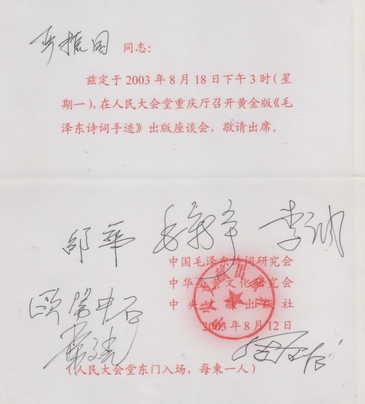 振国 同志：
兹定于 2003 年 8 月 18 日下午 3 时（星
期一），在人民大会堂重庆厅召开黄金版《毛
泽东诗词手迹》出版座谈会，敬请出席。
邵华 毛新宇 李讷
中国毛泽东诗词研究会
中华 文化研究会
中央 出版社
欧阳中石
2003 年 8 月 12 日
（人民大会堂东门入场，每柬一人）